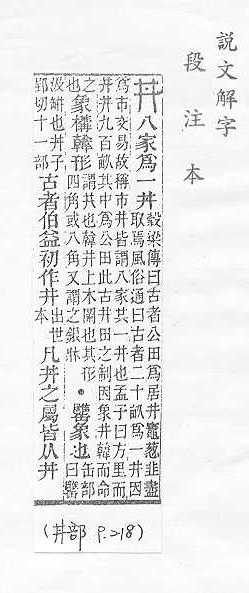 說文解字
段注本
丼八家爲一丼穀梁傳曰古者公田爲居丼竈葱韭盡
取焉風俗通曰古者二十畝爲一丼因
爲市交易故稱市井皆謂八家共一丼也孟子曰方里而
井井九百畝其中爲公田此古井田之制因象井韓而命
之也象構韓形謂其也韓井上木闌也其形
四角或八角又謂之銀牀・罋象也缶部
曰罋
汲缾也丼子
郢切十一部古者伯益初作丼出世
本凡丼之屬皆从丼
(丼部 P.218)